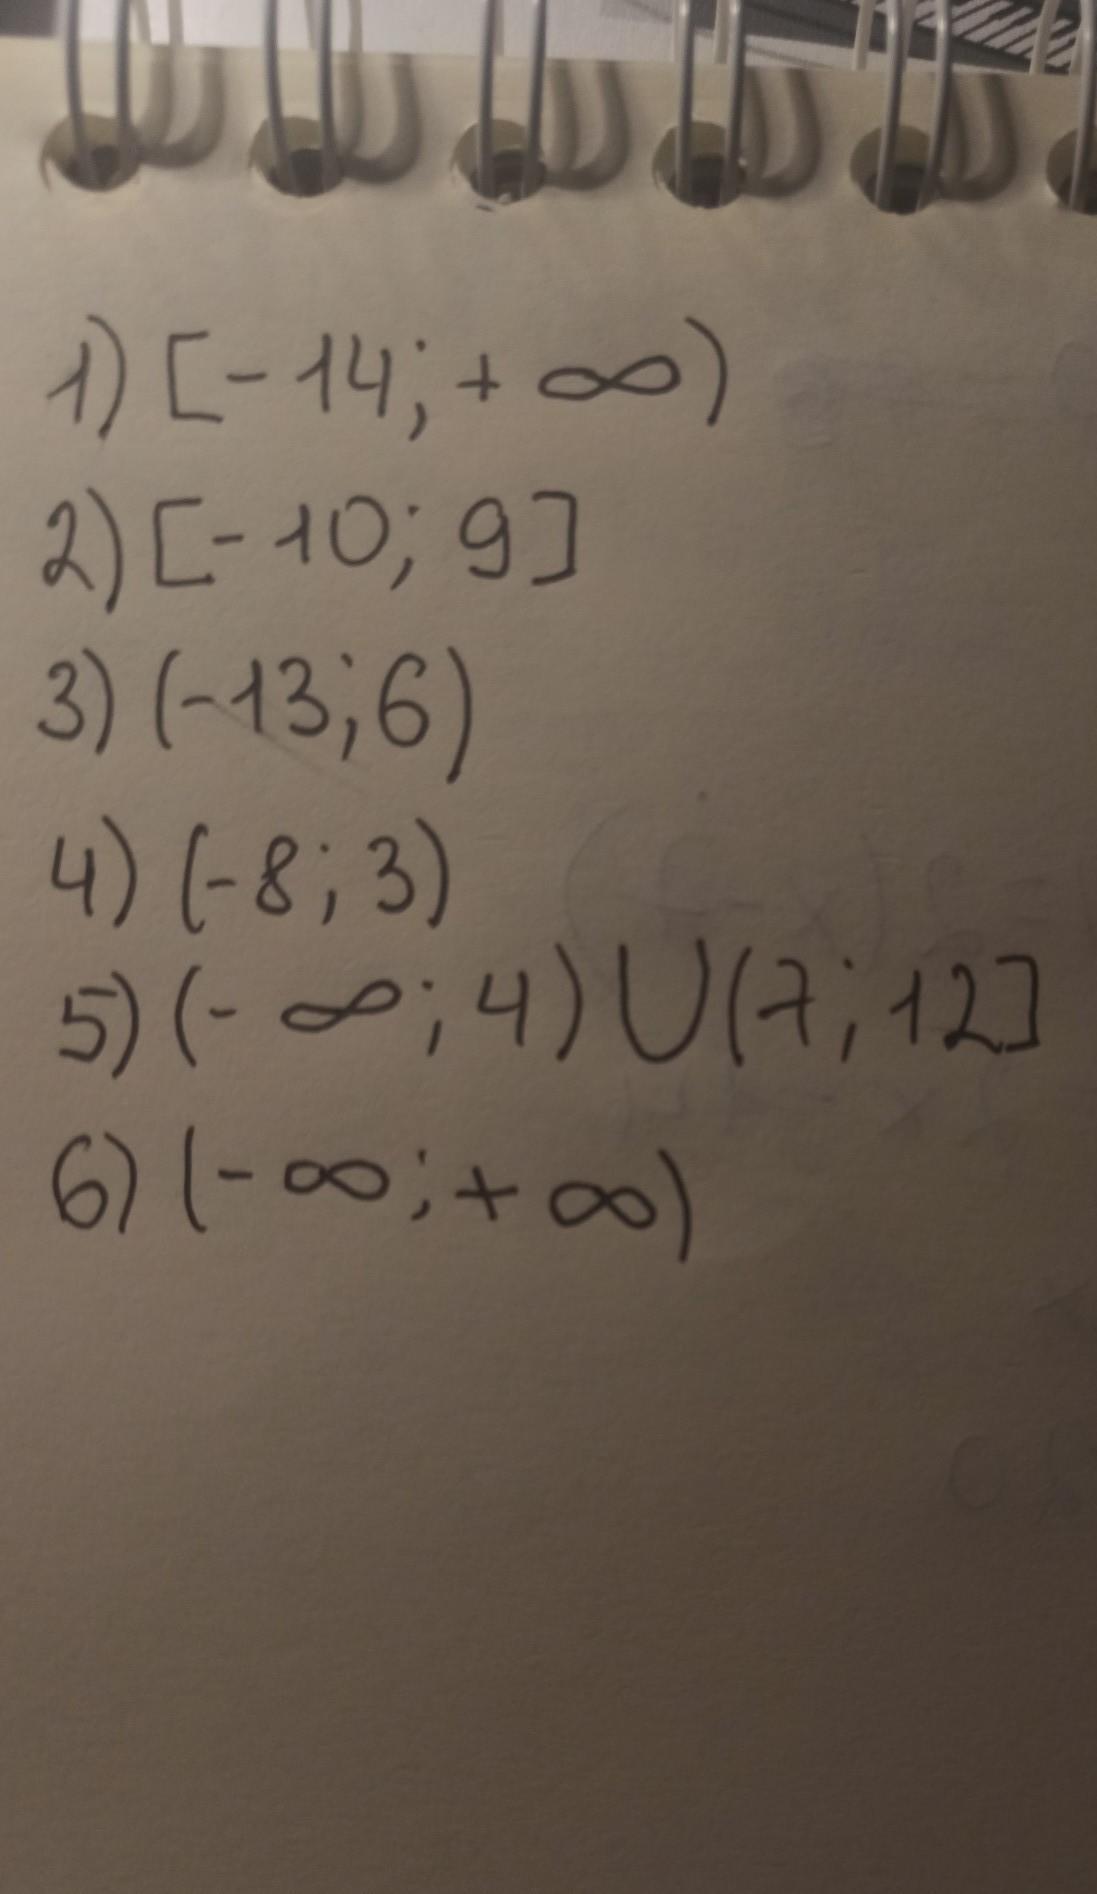 1) [-14; +∞)
2) [-10; 9]
3) (-13; 6)
4) (-8; 3)
5) (-∞; 4) ∪ (7; 12]
6) (-∞; +∞)